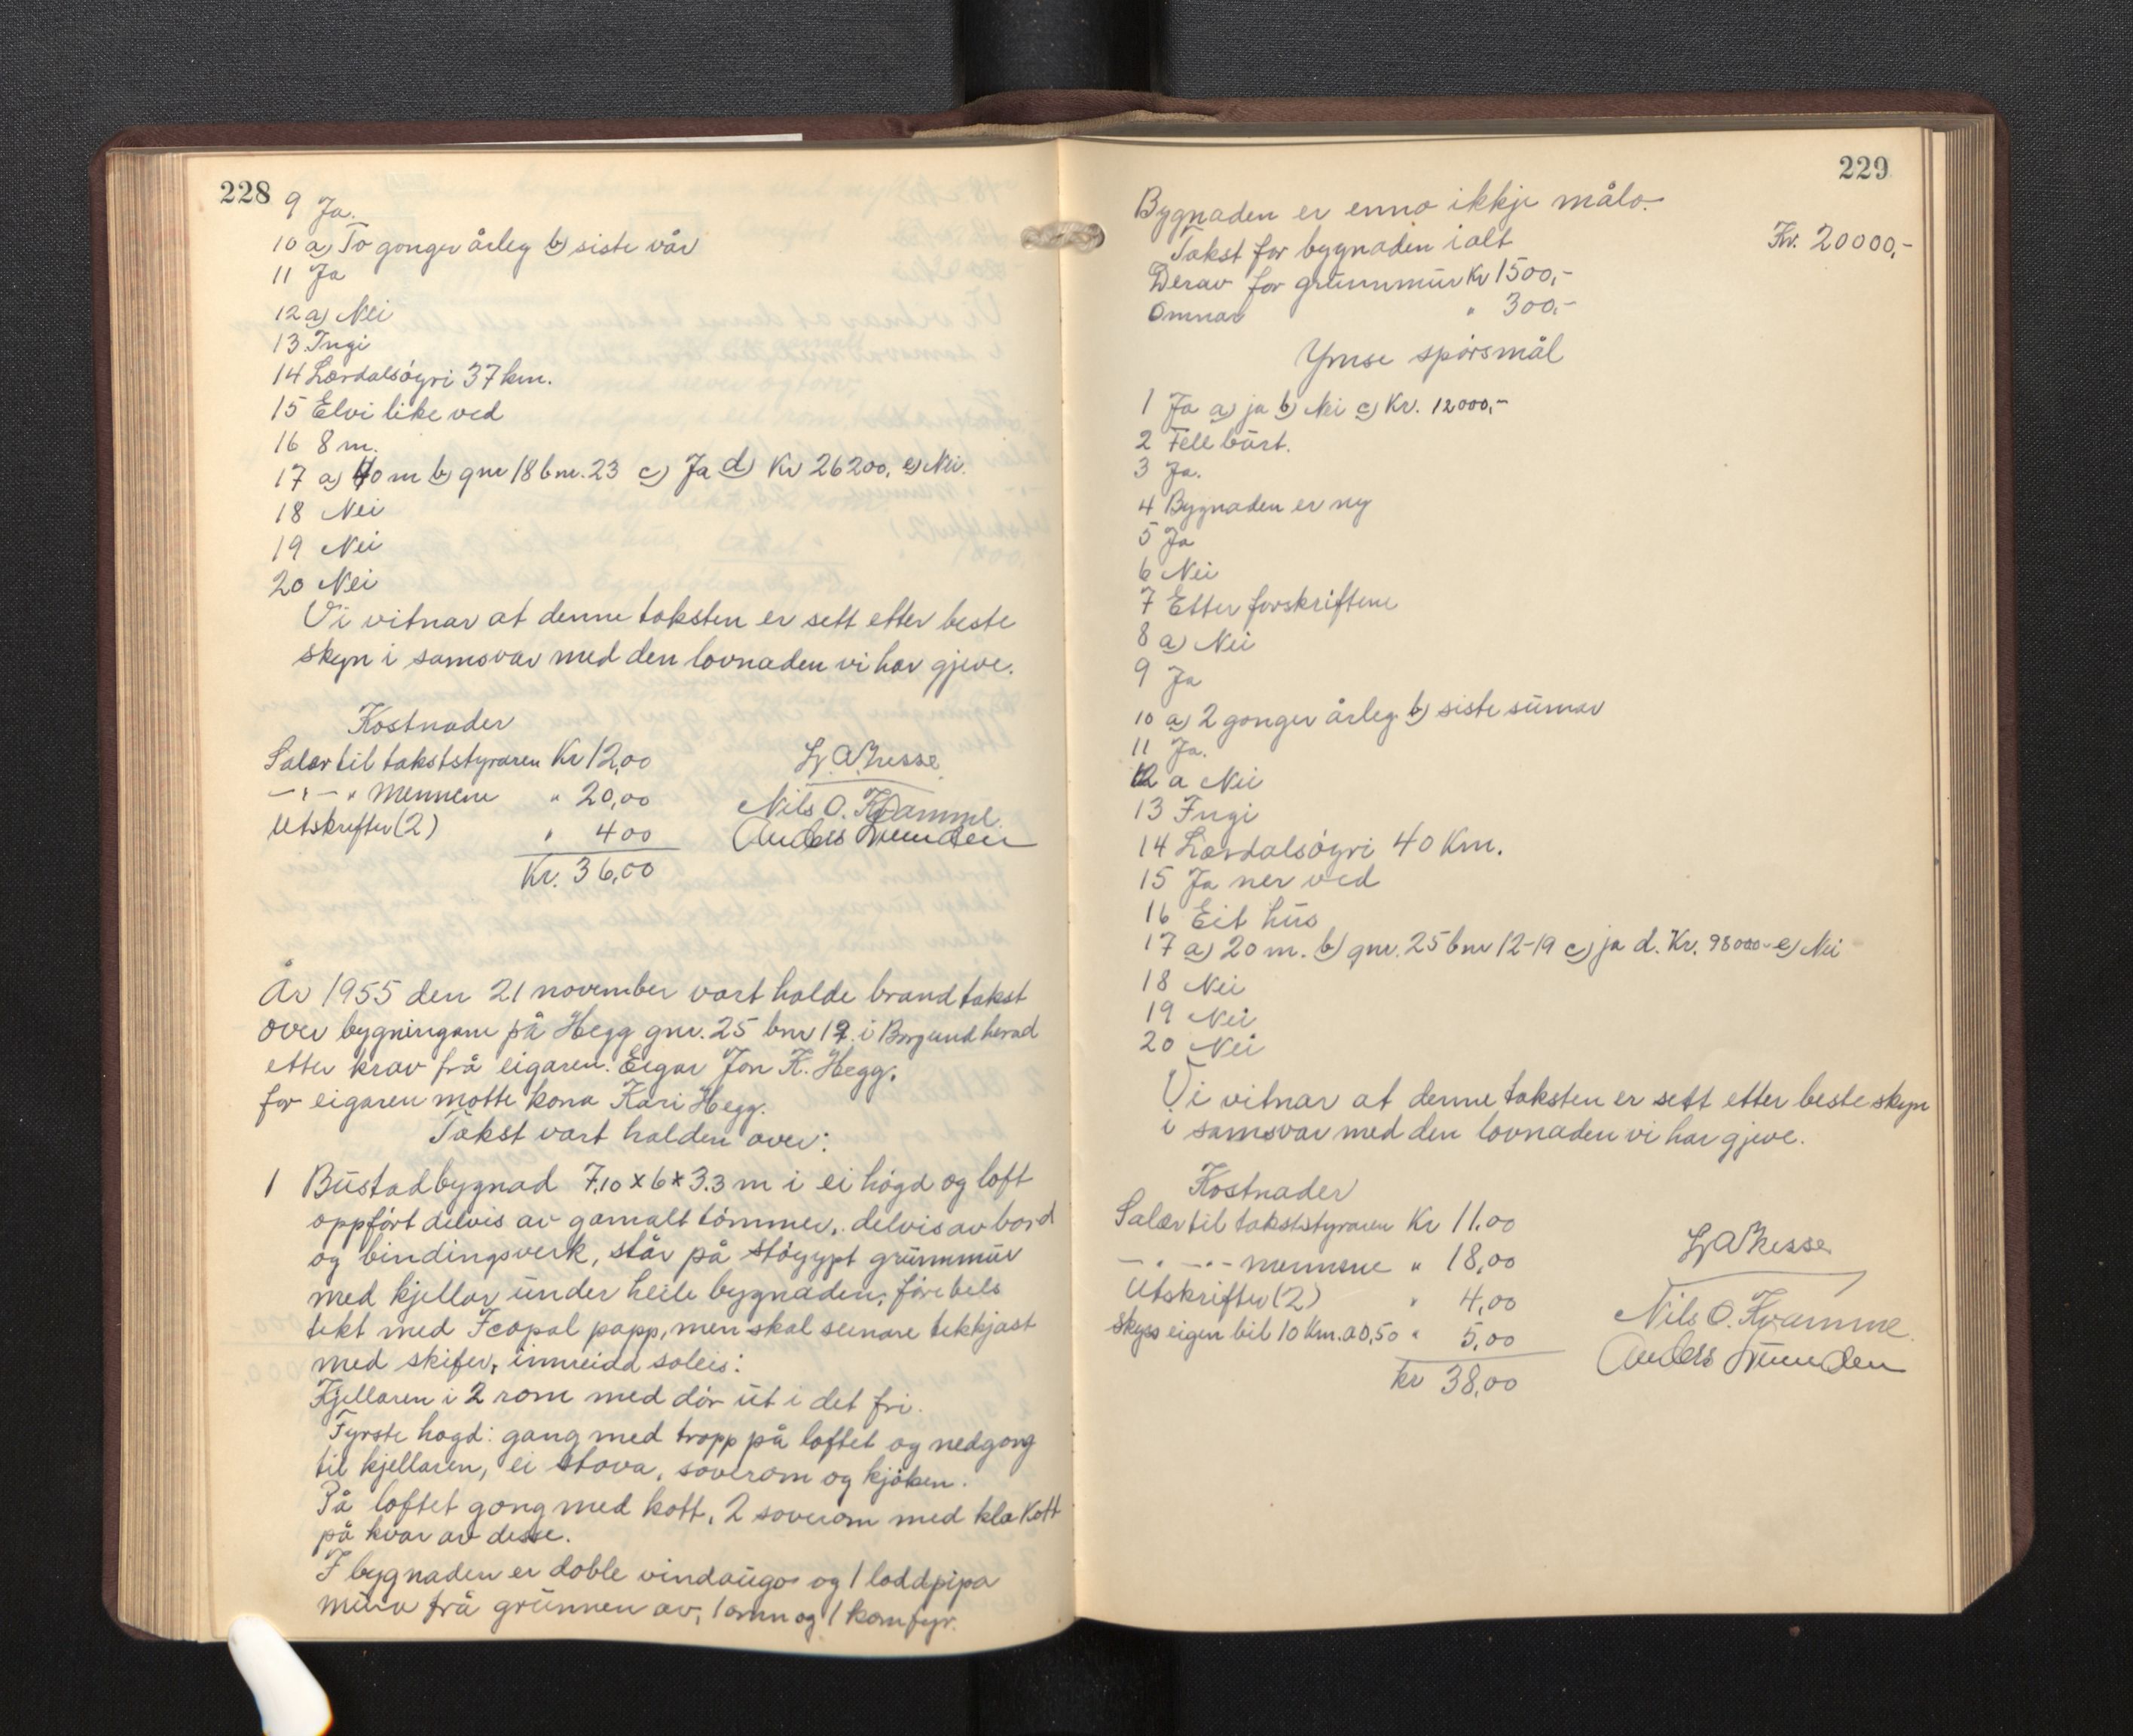 228
9 Ja.
10 a) To gonger årleg b) siste vår
11 Ja
12 a) Nei
13 Ingi
14 Lærdalsøyri 37 km.
15 Elvi like ved
16 8 m.
17 a) 40 m b) gnr 18 bnr. 23 c) Ja d) Kr 26200, e) Nei.
18 Nei
19 Nei
20 Nei
Vi vitnar at denne taksten er sett etter beste
skyn i samsvar med den lovnaden vi har gjeve.
Kostnader
Salær til takststyraren Kr 12,00
—"— " mennene " 20,00
Utskrifter (2) " 4 00
Kr. 36,00
Nils O. Kvamme.
Anders
År 1955 den 21 november vart halde brandtakst
over bygningane på Hegg gnr. 25 bnr 19. i Borgund herad
etter krav frå eigaren. Eigar Jon K. Hegg.
for eigaren møtte kona Kari Hegg.
Takst vart halden over:
1 Bustadbygnad 7,10 x 6 x 3.3 m i ei høgd og loft
oppført delvis av gamalt tømmer, delvis av bord
og bindingsverk, står på støypt grunnmur
med kjellar under heile bygnaden, førebels
tekt med Icopal papp, men skal seinare tekkjast
med skifer, innreidd soleis:
Kjellaren i 2 rom med dør ut i det fri.
Fyrste høgd: gang med tropp på loftet og nedgong
til kjellaren, ei stova, soverom og kjøken.
På loftet gong med kott, 2 soverom med kla kott
på kvar av desse.
I bygnaden er doble vindaugo og 1 loddpipa
mura frå grunnen av, 1 omn og 1 komfyr.
229
Bygnaden er enno ikkje måla.
Takst for bygnaden ialt Kr. 20000,-
Derav for grunnmur Kr 1500,-
Omnar " 300,-
Ymse spørsmål
1 Ja a) ja b) Nei c) Kr. 12000,-
2 Fellbart.
3 Ja.
4 Bygnaden er ny
5 Ja
6 Nei
7 Etter forskriftene
8 a) Nei
9 Ja
10 a) 2 gonger årleg b) siste sumar
11 Ja.
12 a Nei
13 Ingi
14 Lærdalsøyri 40 Km.
15 Ja ner ved
16 Eit hus
17 a) 20 m. b) gnr. 25 bnr 12-19 c) ja d. Kr. 98000- e) Nei
18 Nei
19 Nei
20 Nei
Vi vitnar at denne taksten er sett etter beste skyn
i samsvar med den lovnaden vi har gjeve.
Kostnader
Salær til takststyraren Kr 11.00
— " — " — mennene " 18,00
Utskrifter (2) " 4,00
Skyss eigen bil 10 Km. a 0,50 " 5,00
Kr 38,00
Nils O. Kvamme.
Anders